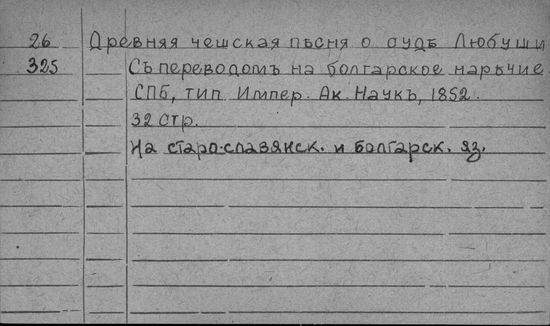 26 Древняя чешская пѣсня о судѣ Любуши
325 Съ переводомъ на болгарское нарѣчие
СПБ, тип. Импер. Ак. Наукъ, 1852.
32 стр.
На старо-славянск. и болгарск. яз.